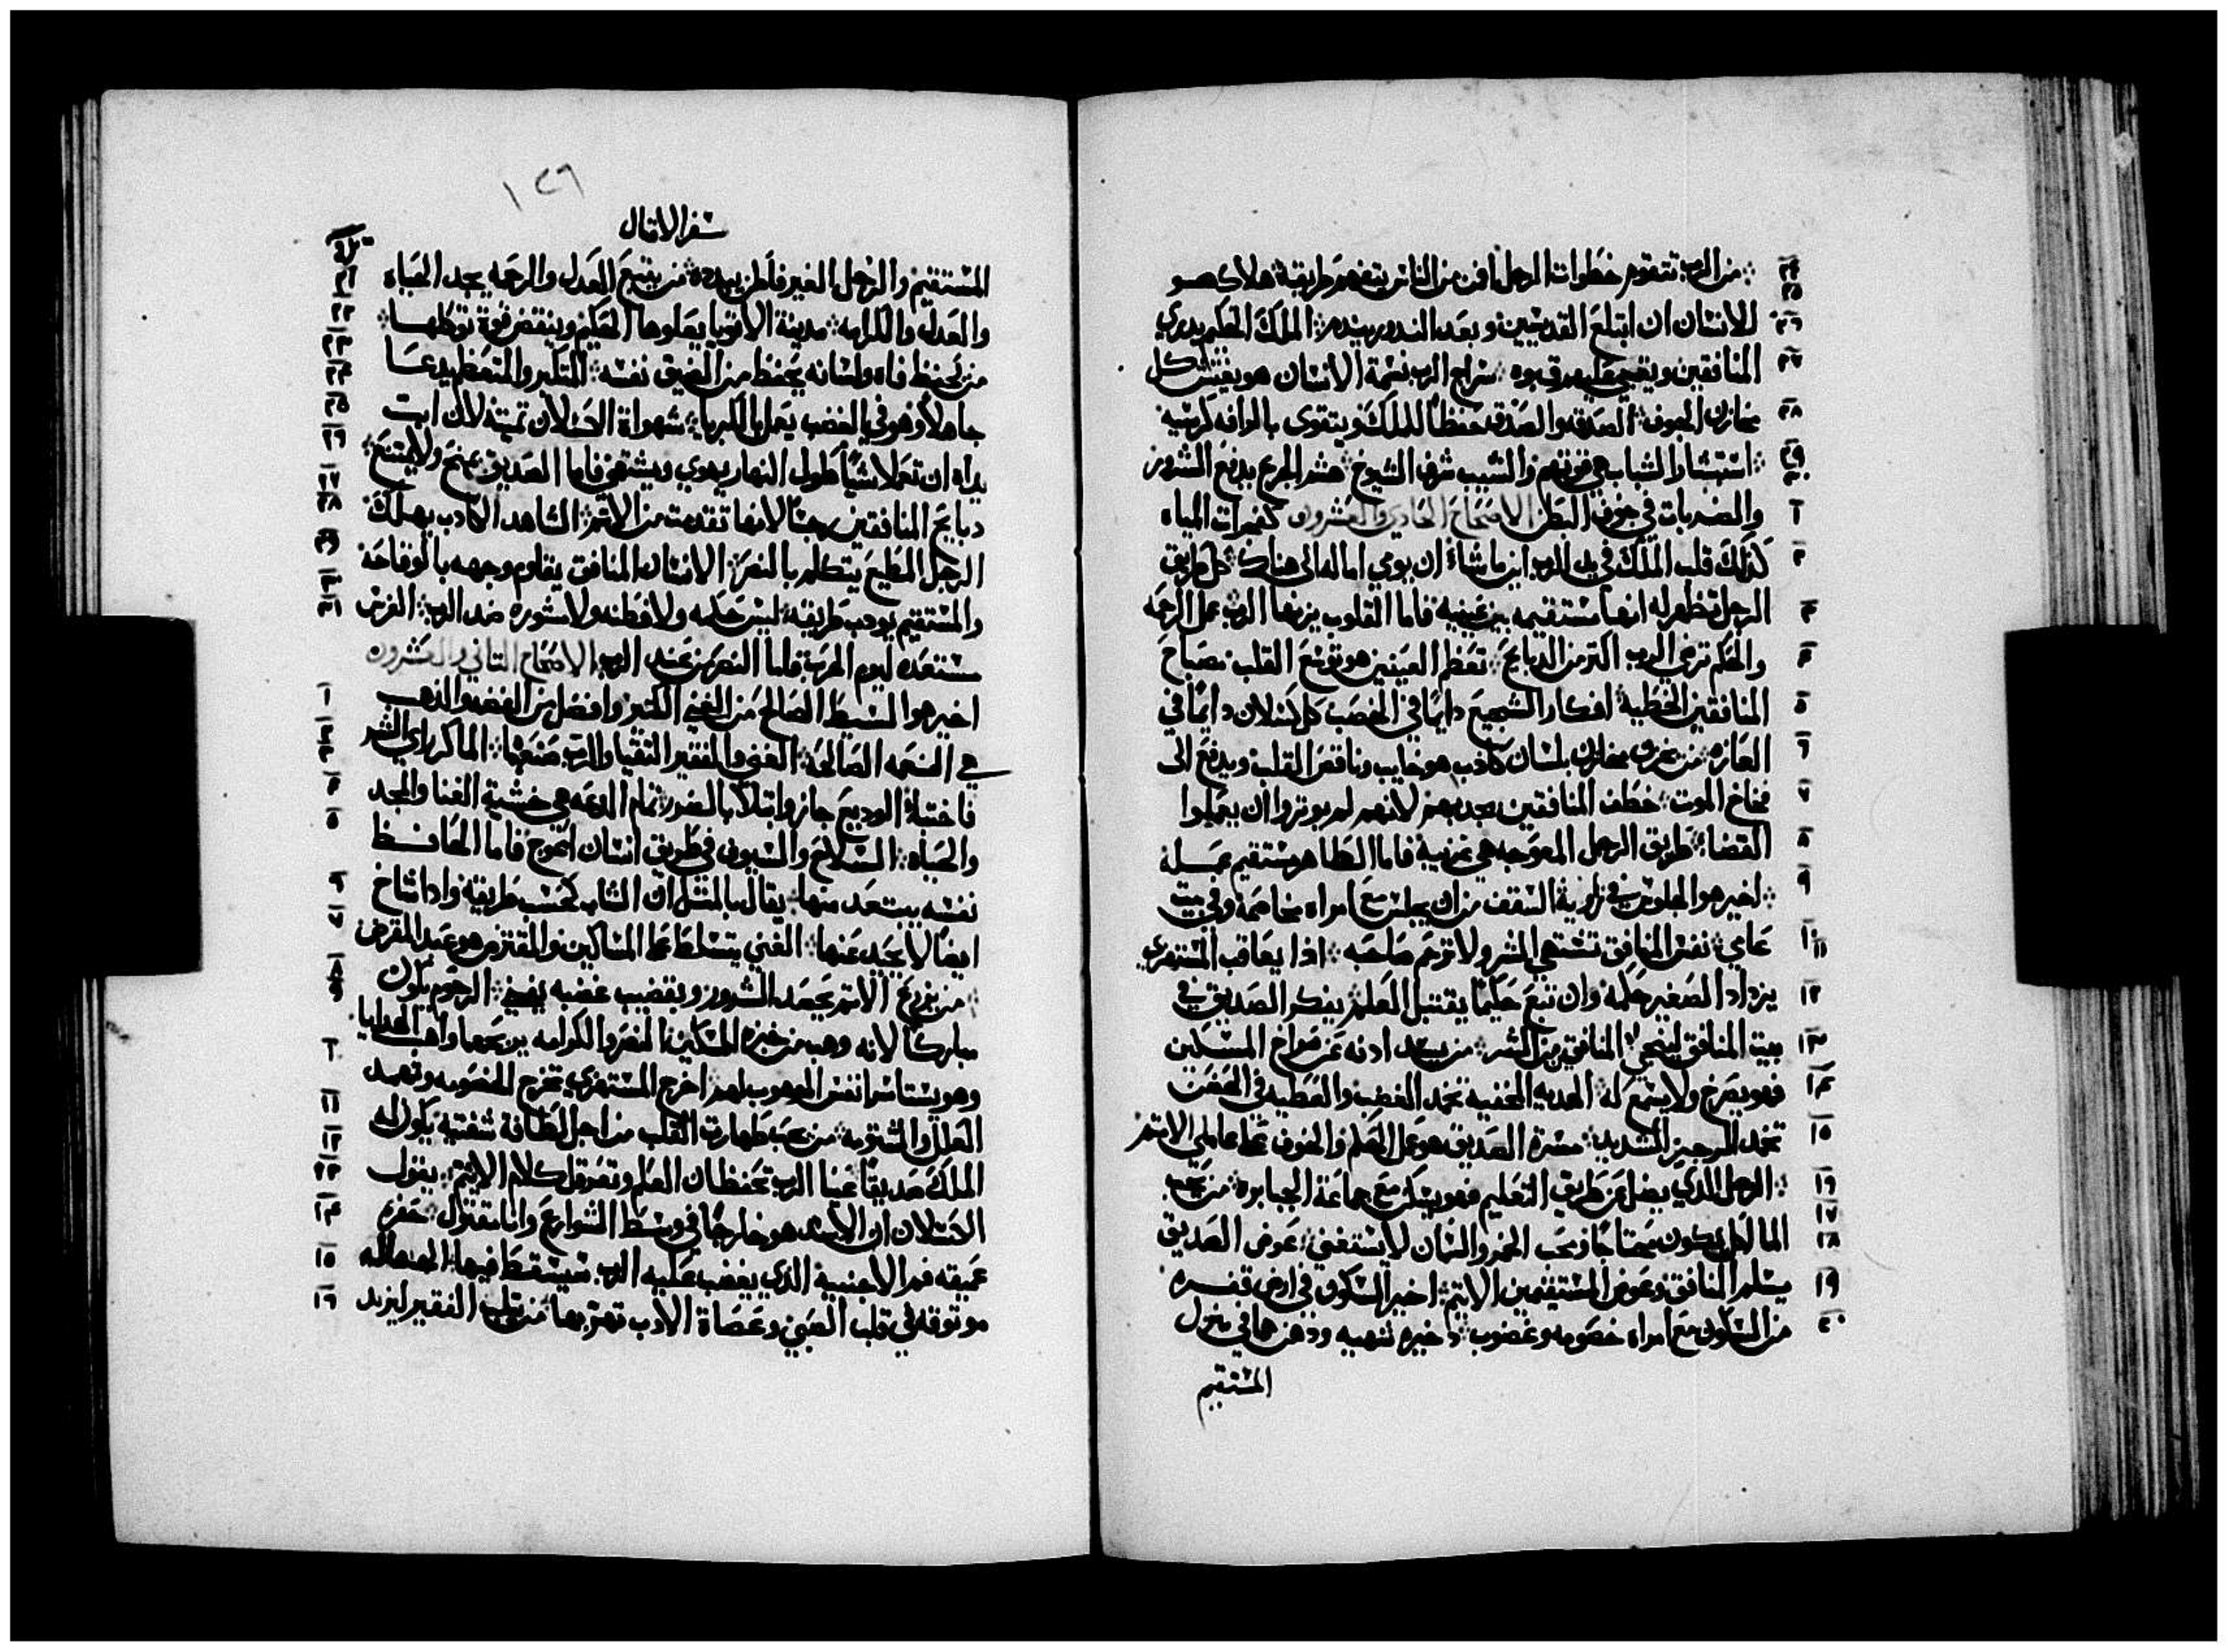 من الرب تتقوم خطوات الرجل فمن من الناس يتفهم طريقه هلاك هو
للانسان ان ابتلع القديسين وبعد الندور يندم الملك الحكيم يدري
المنافقين ويقيم عليهم قبوه سراج الرب نسمة الانسان هو يفتش كل
مخازن الجوف الصدقه والصدق حفظا للملك ويتقوى بالرافه كرسيه
استبشار الشباب هي قوتهم والشيب شرف الشيوخ هشم الجرح يدفع الشرور
والضربات في جوف البطن الاصحاح الحادي والعشرون كفجرات المياه
كذلك قلب الملك في يد الرب اين ما شاء ان يومي اماله الى هناك كل طريق
الرجل تظهر له انها مستقيمه بين عينيه فاما القلوب يزنها الرب عمل الرحمه
والحكم ترضي الرب اكتر من الدبايح تعظم العينين هو توسع القلب مصباح
المنافقين الخطية افكار الشجيع دايما في الخصب كل كسلان دايما في
العازه من يحرق مخازن بلسان كاذب هو خايب وناقص القلب ويدفع الى
فخاخ الموت خطف المنافقين يجدبهم لانهم لم يوتروا ان يعملوا
القضا طريق الرجل المعوجه هي غريبة فاما الطاهر مستقيم عمله
اخير هو الجلوس في زاوية السقف من ان يجلس مع امراه مخاصمة وفي بيت
عامي نفس المنافق تشتهي الشر ولا ترحم صاحبه اذا يعاقب المستهزي
يزداد الصغير حكمة وان تبع حكيما يقتبل العلم يفكر الصديق في
بيت المنافق لينجي المنافق من الشر من يسد ادنه عن صراخ المسكين
فهو يصرخ ولا يستمع له الهدية الخفيه تخمد الغضب والعطيه في الحضن
تخمد الرجز الشديد مسرة الصديق هو عمل الحكم والخوف على عاملي الاتم
الرجل الدي يضل عن طريق التعليم فهو يسكن مع جماعة الجبابره من يحب
الماكل يكون محتاجا ومحب الخمر والسمان لا يستغني عوض الصديق
يسلم المنافق وعوض المستقيمين الاتيم اخير السكون في ارض قفره
من السكون مع امراه خصومه وغضوب دخيره شهيه ودهن هما في منزل
المستقيم
١٢٦
سفر الامثال
المستقيم والرجل الغير فاطن يبدده من يتبع العدل والرحمه يجد الحياه
والعدل والكرامه مدينة الاقويا يعلوها الحكيم وينقض قوة توكلها
من يحفظ فاه ولسانه يحفظ من الضيق نفسه المتكبر والمتعظم يدعا
جاهلا وهو في الغضب يعمل بالكبريا شهواة الكسلان تميته لان ابت
يداه ان تعملا شيا طول النهار يهوي ويشتهي فاما الصديق يمنح ولا يمتنع
دبايح المنافقين رجسا لانها تقدمت من الاتم الشاهد الكادب يهلك
الرجل المطيع يتكلم بالنصر الانسان المنافق يقاوم وجهه بالوقاحه
والمستقيم يودب طريقه ليس حكمه ولا فطنه ولا مشوره ضد الرب الفرس
مستعده ليوم الحرب فاما النصر من عند الرب الاصحاح التاني والعشرون
اخير هو البسيط الصالح من الغني الكتير وافضل من الفضه والدهب
هي النعمه الصالحة الغني والفقير التقيا والرب صنعهما الماكر راي الشر
فاختبا الوديع جاز وابتلا بالضرر تمام الدعه هي خشية الغنا والمجد
والحياه السلاح والسيوف في طريق انسان اعوج فاما الحافظ
نفسه يبتعد منها يقال بالمتل ان الشاب كحسب طريقه وادا شاخ
ايضا لا يحيد عنها الغني يتسلط على المساكين والمقترض هو عبد المقرض
من يزرع الاتم يحصد الشرور وبقضيب غضبه يفني الرحوم يكون
مباركا لانه وهب من خبزه المسكين النصر والكرامه يربحها واهب الهدايا
وهو يستاسر انفس الموهوب لهم اخرج المستهزي تخرج الخصومه وتهمد
العلل والشتومه من يحب طهارت القلب من اجل لطافة شفتيه يكون له
الملك صديقا عينا الرب تحفظان العلم وتعرقل كلام الاتيم يقول
الكسلان ان الاسد هو خارجا في وسط الشوارع وانا مقتول حفره
عميقه فم الاجنبية الدي يغضب عليه الرب سيسقط فيها الجهاله
موتوقة في قلب الصبي وعصاة الادب تهزبها من يتلب الفقير ليزيد